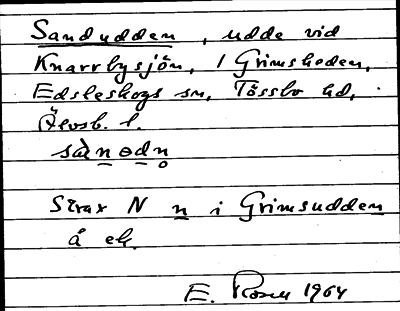 Sandudden, udde vid
Knarrbysjön, / Grimsheden,
Edsleskogs sn, Tössbo hd,
Älvsb. l.
sàn odn
Strax N n i Grimsudden
å ek.
E. Rosen 1964